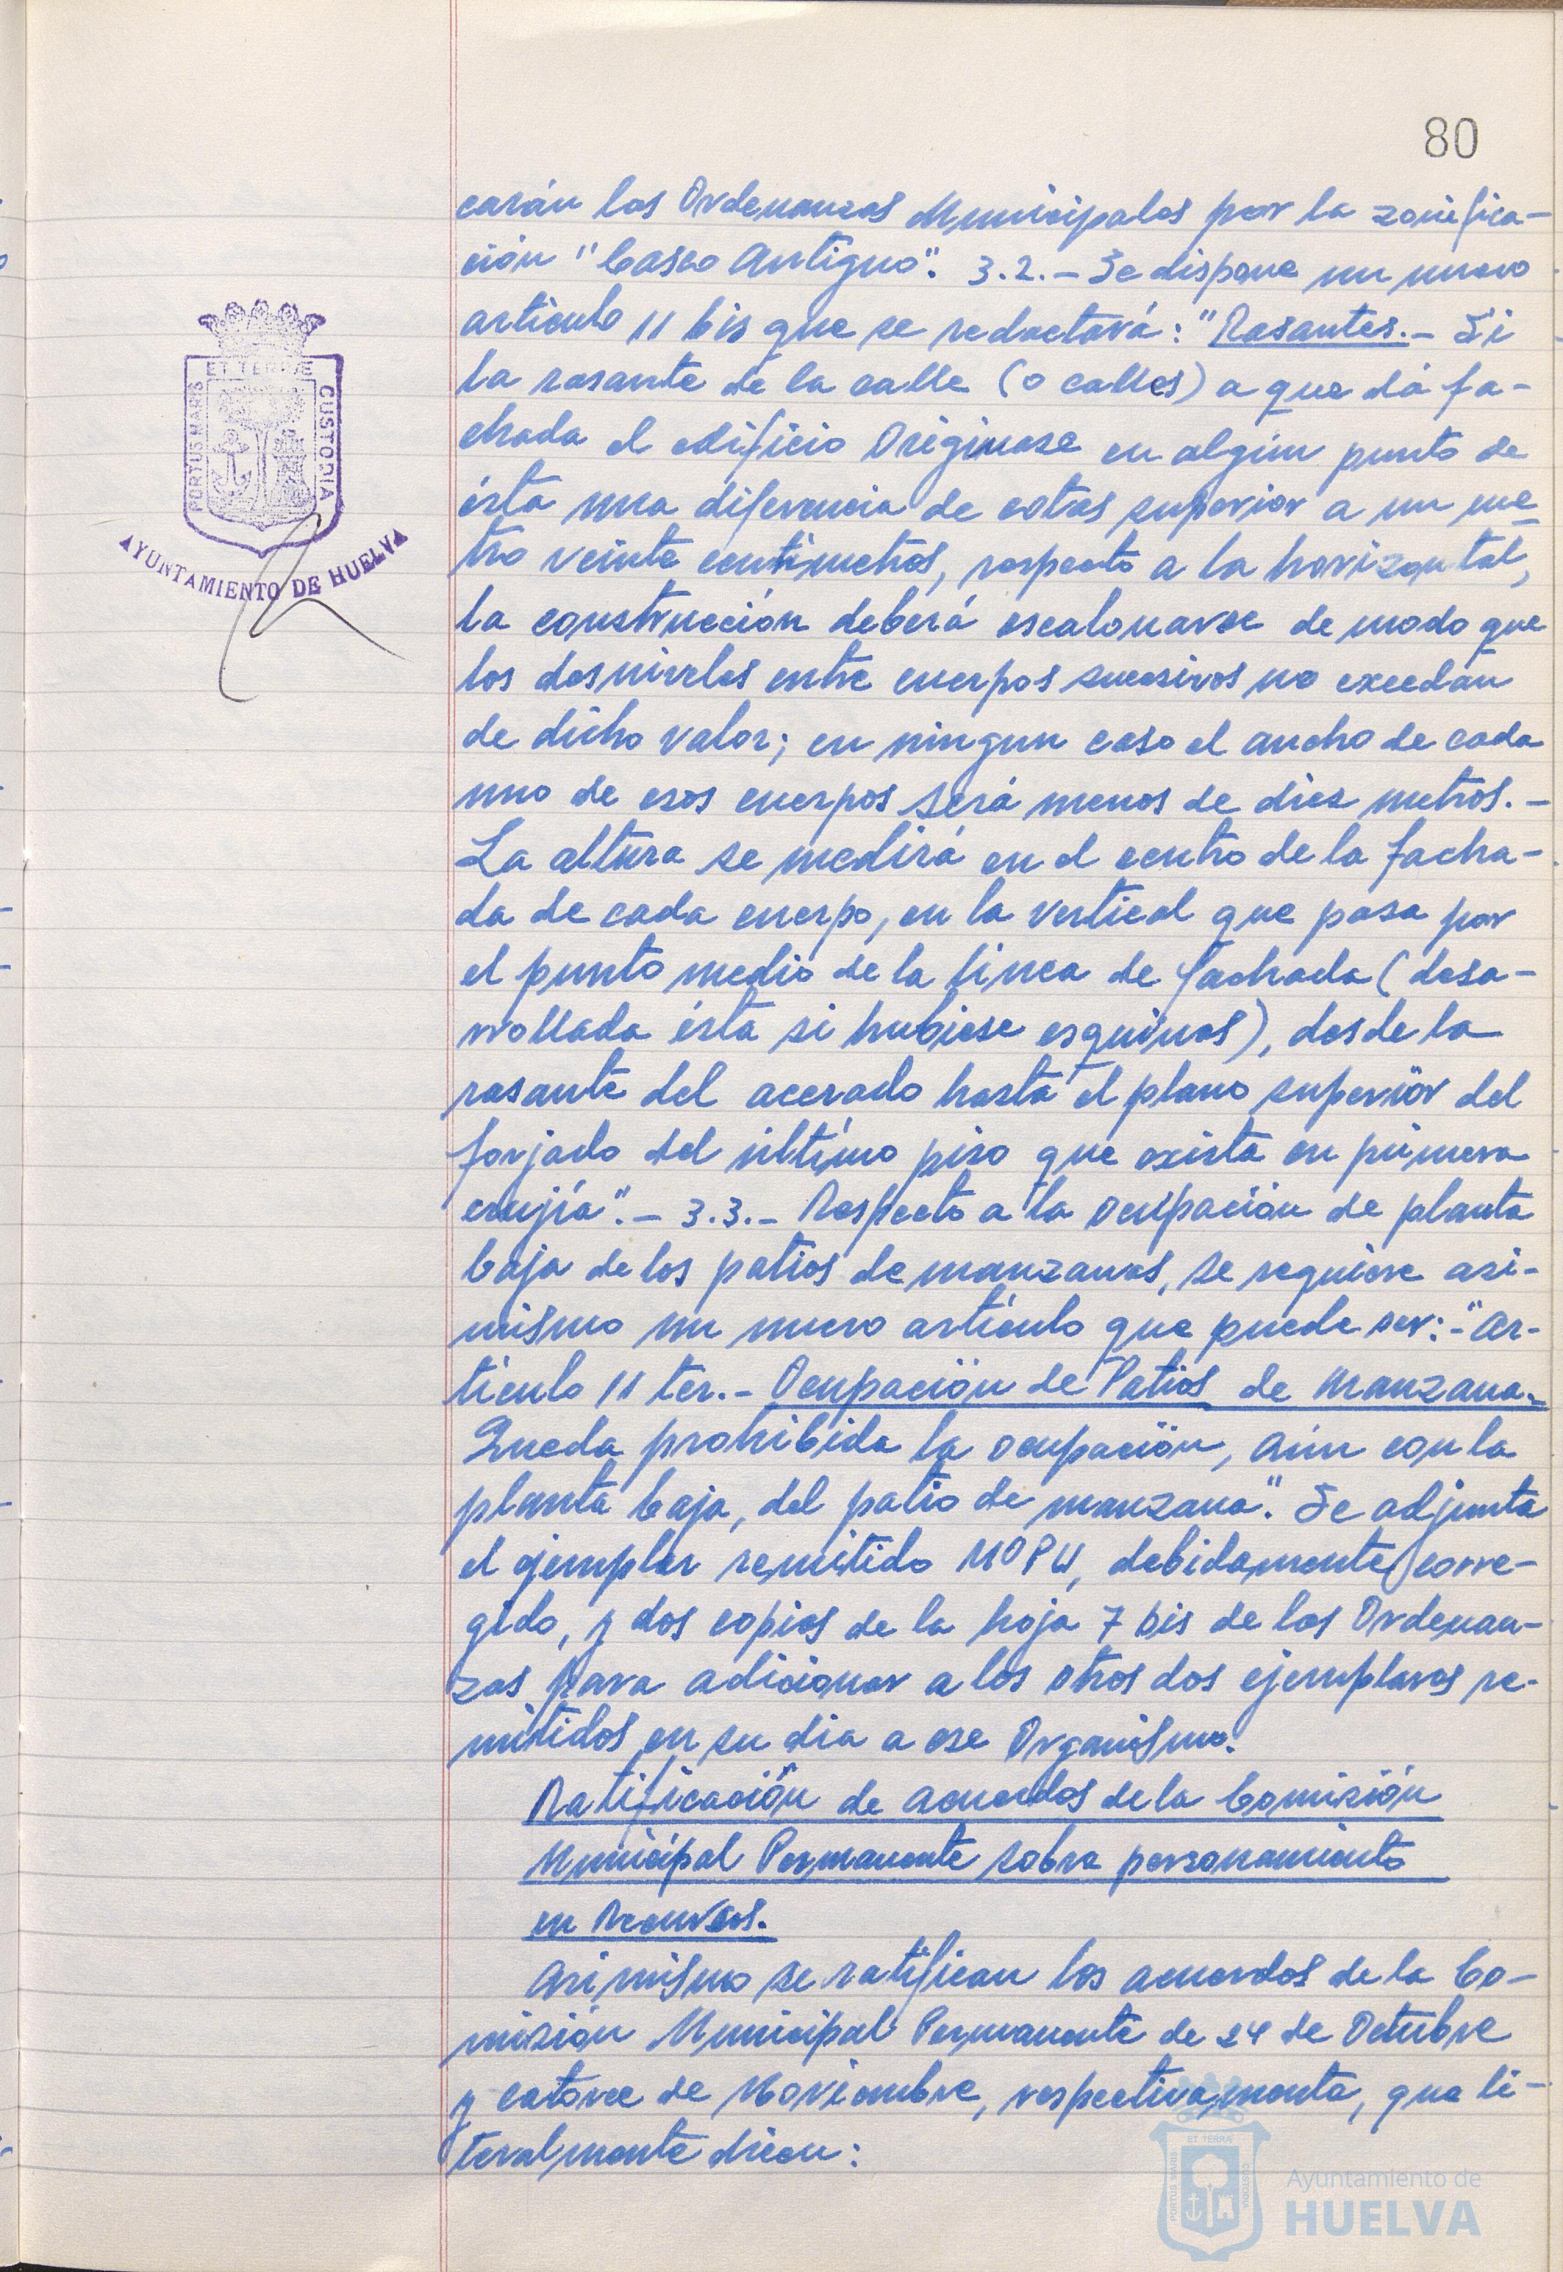 80
carán las Ordenanzas Municipales por la zonifica-
ción "Casco Antiguo". 3.2.- Se dispone un nuevo
artículo 11 bis que se redactará: "Rasantes.- Si
la rasante de la calle (o calles) a que dá fa-
chada el edificio Originase en algún punto de
ésta una diferencia de cotas superior a un me
tro veinte centímetros, respecto a la horizontal,
la construcción deberá escalonarse de modo que
los desniveles entre cuerpos sucesivos no excedan
de dicho valor; en ningun caso el ancho de cada
uno de esos cuerpos será menos de diez metros.-
La altura se medirá en el centro de la facha-
da de cada cuerpo, en la vertical que pasa por
el punto medio de la línea de fachada (desa-
rrollada ésta si hubiese esquinas), desde la
rasante del acerado hasta el plano superior del
forjado del último piso que exista en primera
crujía".- 3.3.- Respecto a la ocupación de planta
baja de los patios de manzanas, se requiere asi-
mismo un nuevo artículo que puede ser:-"Ar-
tículo 11 ter.- Ocupación de Patios de Manzana.
Queda prohibida la ocupación, aún con la
planta baja, del patio de manzana". Se adjunta
el ejemplar remitido MOPU, debidamente corre-
gido, y dos copias de la hoja 7 bis de las Ordenan-
zas para adicionar a los otros dos ejemplares re-
mitidos en su dia a ese Organismo.
Ratificación de acuerdos de la Comisión
Municipal Permanente sobre personamiento
en Recursos.
Asimismo se ratifican los acuerdos de la Co-
misión Municipal Permanente de 24 de Octubre
y catorce de Noviembre, respectivamente, que li-
teralmente dicen:
PORTUS MARIS ET TERRAE CUSTODIA
AYUNTAMIENTO DE HUELVA
Ayuntamiento de
HUELVA